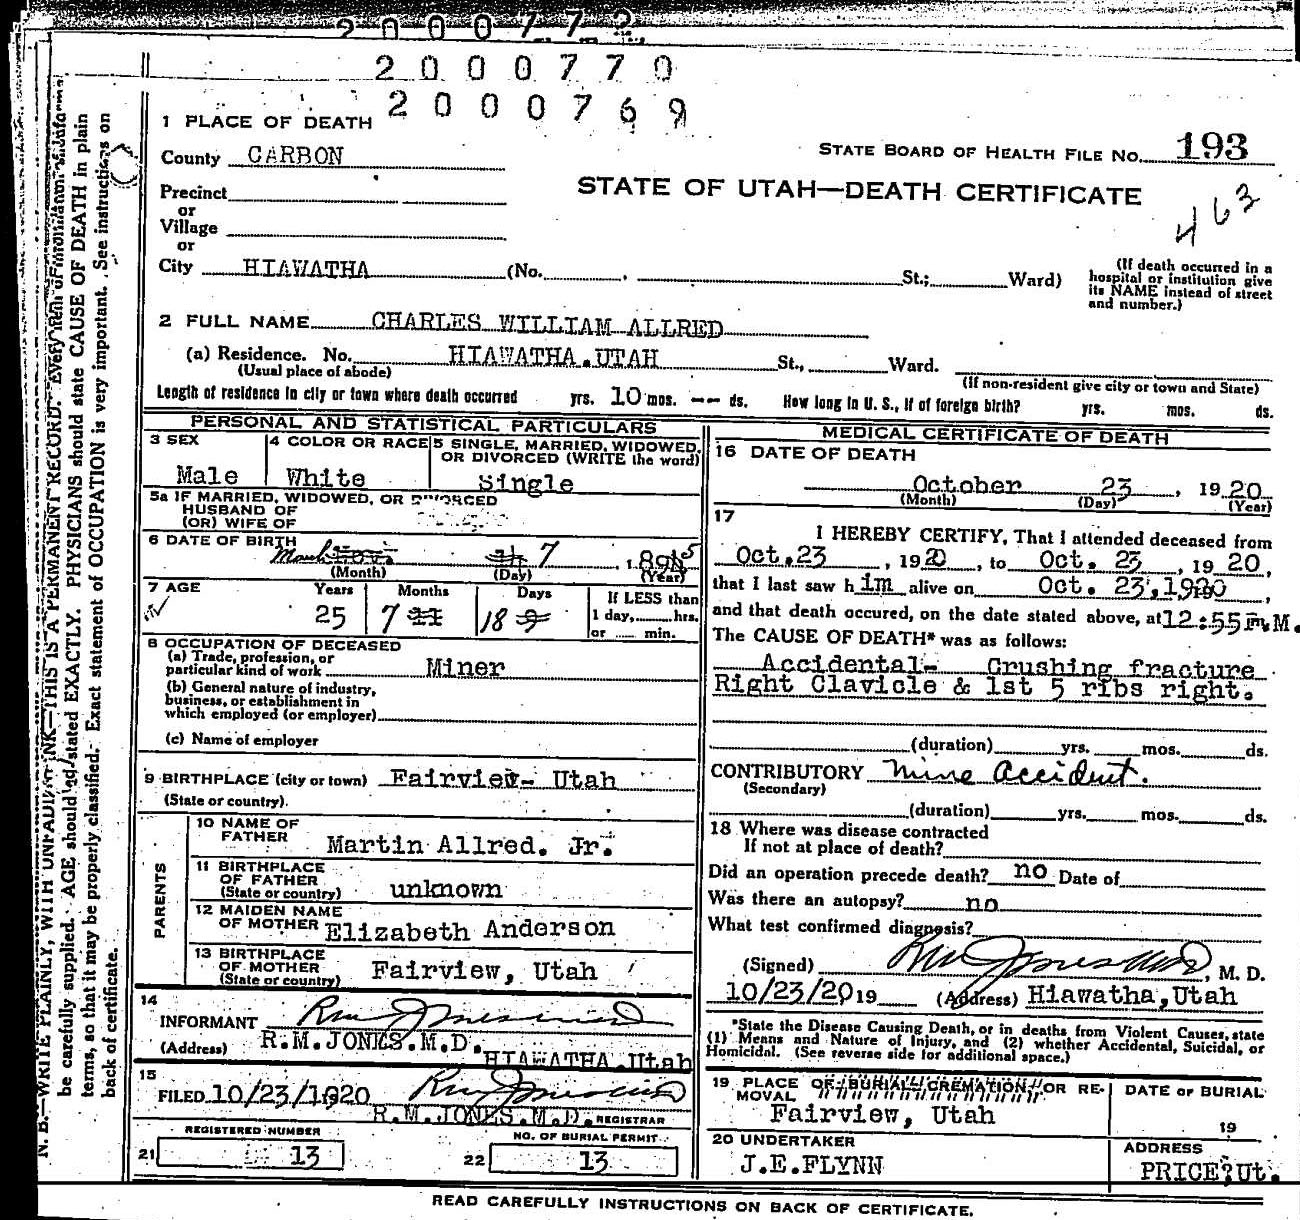 2 0 0 0 7 7 2
2 0 0 0 7 7 0
2 0 0 0 7 6 9
1 PLACE OF DEATH
County CARBON
STATE BOARD OF HEALTH FILE NO. 193
Precinct
or
Village
or
STATE OF UTAH—DEATH CERTIFICATE
463
City HIAWATHA (No. , St.; Ward)
(If death occurred in a
hospital or institution give
its NAME instead of street
and number.)
2 FULL NAME CHARLES WILLIAM ALLRED
(a) Residence. No. HIAWATHA.UTAH St., Ward.
(Usual place of abode)
(If non-resident give city or town and State)
Length of residence in city or town where death occurred yrs. 10 mos. -- ds. How long in U. S., if of foreign birth? yrs. mos. ds.
PERSONAL AND STATISTICAL PARTICULARS
3 SEX
Male
4 COLOR OR RACE
White
5 SINGLE, MARRIED, WIDOWED,
OR DIVORCED (WRITE the word)
Single
5a IF MARRIED, WIDOWED, OR DIVORCED
HUSBAND OF
(OR) WIFE OF
6 DATE OF BIRTH
March Nov. 7 , 1895
(Month) (Day) (Year)
7 AGE
Years Months Days
25 7 11 18 9
If LESS than
1 day, hrs.
or min.
8 OCCUPATION OF DECEASED
(a) Trade, profession, or
particular kind of work Miner
(b) General nature of industry,
business, or establishment in
which employed (or employer)
(c) Name of employer
9 BIRTHPLACE (city or town) Fairview- Utah
(State or country).
PARENTS
10 NAME OF
FATHER Martin Allred. Jr.
11 BIRTHPLACE
OF FATHER
(State or country) unknown
12 MAIDEN NAME
OF MOTHER Elizabeth Anderson
13 BIRTHPLACE
OF MOTHER
(State or country) Fairview, Utah
14
INFORMANT R M Jones M D
(Address) R.M.JONES.M.D.
HIAWATHA.Utah
15
FILED 10/23/1920 R M Jones M D
R.M.JONES.M.D. REGISTRAR
REGISTERED NUMBER
21 13
NO. OF BURIAL PERMIT
22 13
MEDICAL CERTIFICATE OF DEATH
16 DATE OF DEATH
October 23 , 1920
(Month) (Day) (Year)
17
I HEREBY CERTIFY, That I attended deceased from
Oct.23 , 1920 , to Oct. 23 , 1920,
that I last saw him alive on Oct. 23,1920 ,
and that death occured, on the date stated above, at 12:55P.M.
The CAUSE OF DEATH* was as follows:
Accidental- Crushing fracture
Right Clavicle & 1st 5 ribs right.
(duration) yrs. mos. ds.
CONTRIBUTORY Mine Accident.
(Secondary)
(duration) yrs. mos. ds.
18 Where was disease contracted
If not at place of death?
Did an operation precede death? no Date of
Was there an autopsy? no
What test confirmed diagnosis?
(Signed) R M Jones M D , M. D.
10/23/20 19 (Address) Hiawatha,Utah
*State the Disease Causing Death, or in deaths from Violent Causes, state
(1) Means and Nature of Injury, and (2) whether Accidental, Suicidal, or
Homicidal. (See reverse side for additional space.)
19 PLACE OF BURIAL CREMATION OR RE-
MOVAL
Fairview, Utah
DATE OF BURIAL
19
20 UNDERTAKER
J.E.FLYNN
ADDRESS
PRICE?Ut.
READ CAREFULLY INSTRUCTIONS ON BACK OF CERTIFICATE.
N. B.—WRITE PLAINLY, WITH UNFADING INK—THIS IS A PERMANENT RECORD. Every item of information should
be carefully supplied. AGE should be stated EXACTLY. PHYSICIANS should state CAUSE OF DEATH in plain
terms, so that it may be properly classified. Exact statement of OCCUPATION is very important. See instructions on
back of certificate.